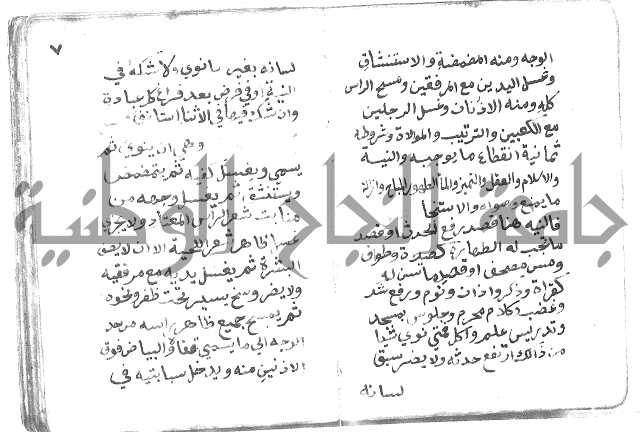 الوجه ومنه المضمضة والاستنشاق
وغسل اليدين مع المرفقين ومسح الراس
كله ومنه الاذنان وغسل الرجلين
مع الكعبين والترتيب والموالاة وشروطه
ثمانية انقطاع ما يوجبه والنية
والاسلام والعقل والتمييز والماء الطهور المباح وازالة
ما يمنع وصوله والاستنجا
فالنية هنا قصد رفع الحدث او قصد
ما تجب له الطهارة كصلاة وطواف
ومس مصحف او قصد ما تسن له
كقراة وذكر واذان ونوم ورفع شك
وغضب وكلام محرم وجلوس بمسجد
وتدريس علم واكل فمتى نوى شيئا
من ذالك ارتفع حدثه ولا يضر سبق
لسانه
٧
لسانه بغير ما نوى ولا شكه في
النية او في فرض بعد فراغ كل عبادة
وان شك فيها في الاثنا استانف
وهي ان ينوي ثم
يسمي ويغسل كفيه ثم يتمضمض
ويستنشق ثم يغسل وجهه من
منابت شعر الراس المعتاد ولا يجزي
غسل ظاهر شعر اللحية الا ان لا يصف
البشرة ثم يغسل يديه مع مرفقيه
ولا يضر وسخ يسير تحت ظفر ونحوه
ثم يمسح جميع ظاهر راسه من حد
الوجه الى ما يسمى قفا والبياض فوق
الاذنين منه ويدخل سبابتيه في
جامعة النجاح الوطنية